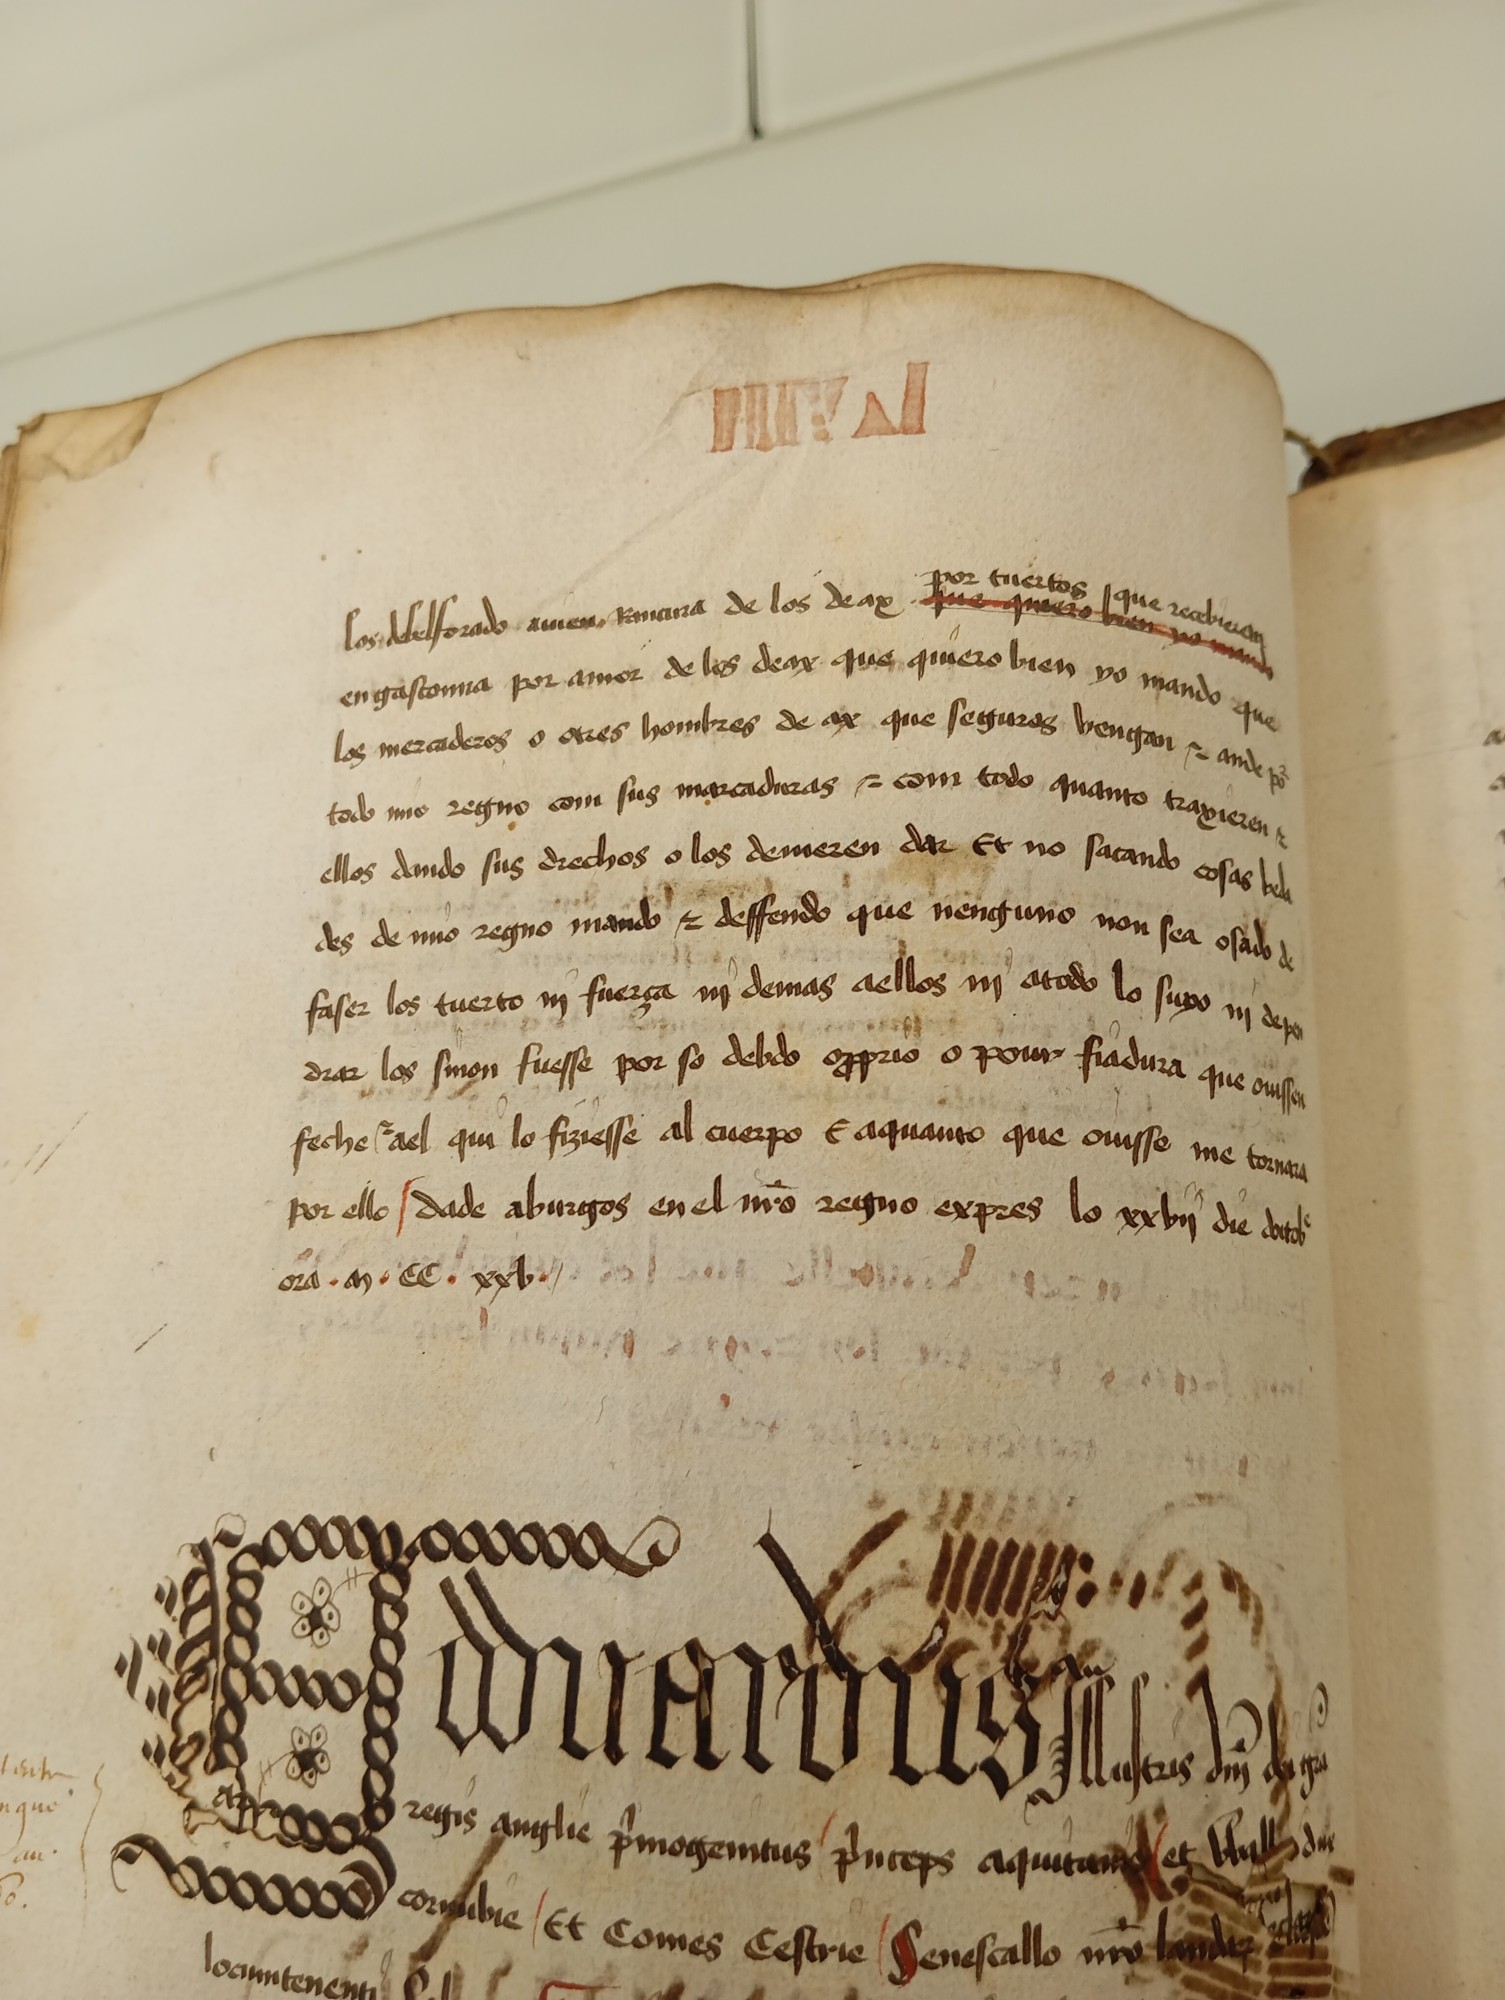 por tuertos que recebieron
los debelforado auien Rancura de los de ax que quiero bien yo mando
en gasconna por amor de los deax que quiero bien yo mando que
los mercaderos o otres hombres de ax que seguros vengan ⁊ ande por
todo mio regno com sus marcaduras ⁊ com todo quanto traxieren ⁊
ellos dando sus drechos o los deuieren dar Et no sacando cosas beda
des de mio regno mando ⁊ deffendo que nenguno non sea osado de
faser los tuerto ni fuerça ni demas aellos ni atodo lo suyo ni depen
drar los sinon fuesse por so debdo opprio o pour fiadura que ouissen
feche ⁊ ael qui lo fiziesse al cuerpo E aquanto que ouisse me tornara
por ello dade aburgos en el nr̄o regno expres lo xxvij die doctob
ora · m · CC · xxv ·
Eduardus Illustris dn̄i dei gra
regis anglie p̄mogenitus p̄nceps aquitanie et Wall dux
cornubie Et Comes Cestrie Senescallo nr̄o
locumtenenti